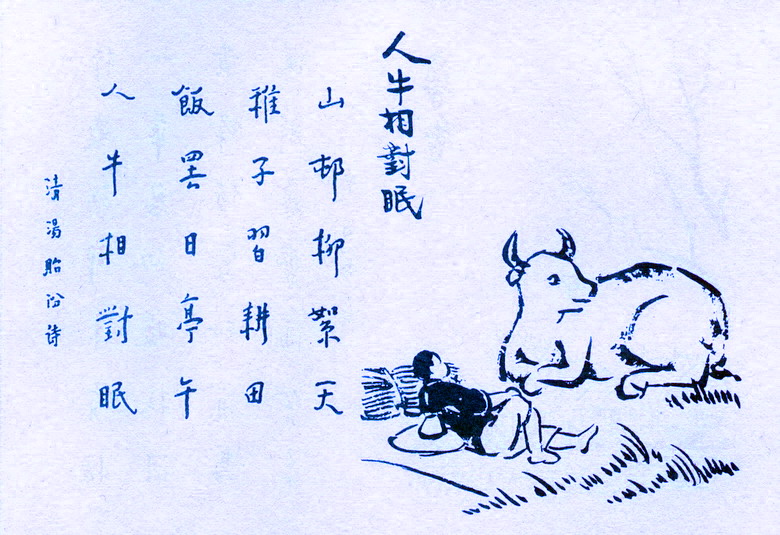 人牛相對眠
山邨柳絮天
稚子習耕田
飯罢日亭午
人牛相對眠
清湯貽汾诗